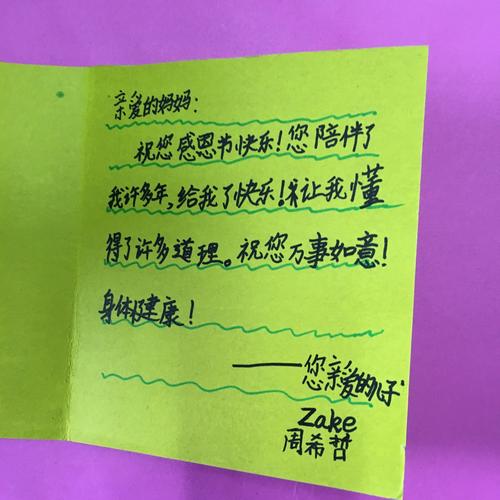 亲爱的妈妈：
祝您感恩节快乐！您陪伴了
我许多年，给我了快乐！让我懂
得了许多道理。祝您万事如意！
身体健康！
——您亲爱的儿子
Zake
周希哲